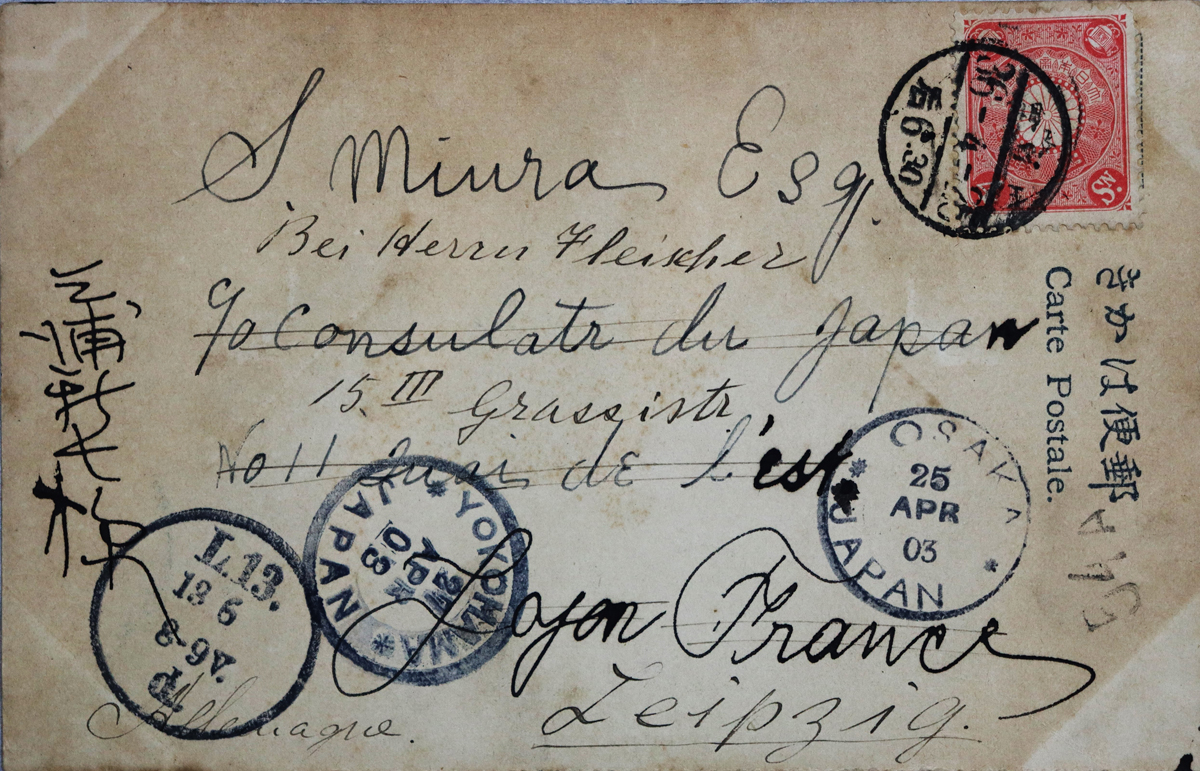 S. Miura Esq.
Bei Herrn Fleischer
c/o Consulatr du Japan
15 III Grassistr.
No 11 Quai de l'est
Lyon France
Leipzig.
Allemagne.
きかは便郵
Carte Postale.
36-4-
后6.30
OSAKA
25
APR
03
JAPAN
YOKOHAMA
APR
03
JAPAN
L.13.
13 6
8-9V.
三浦